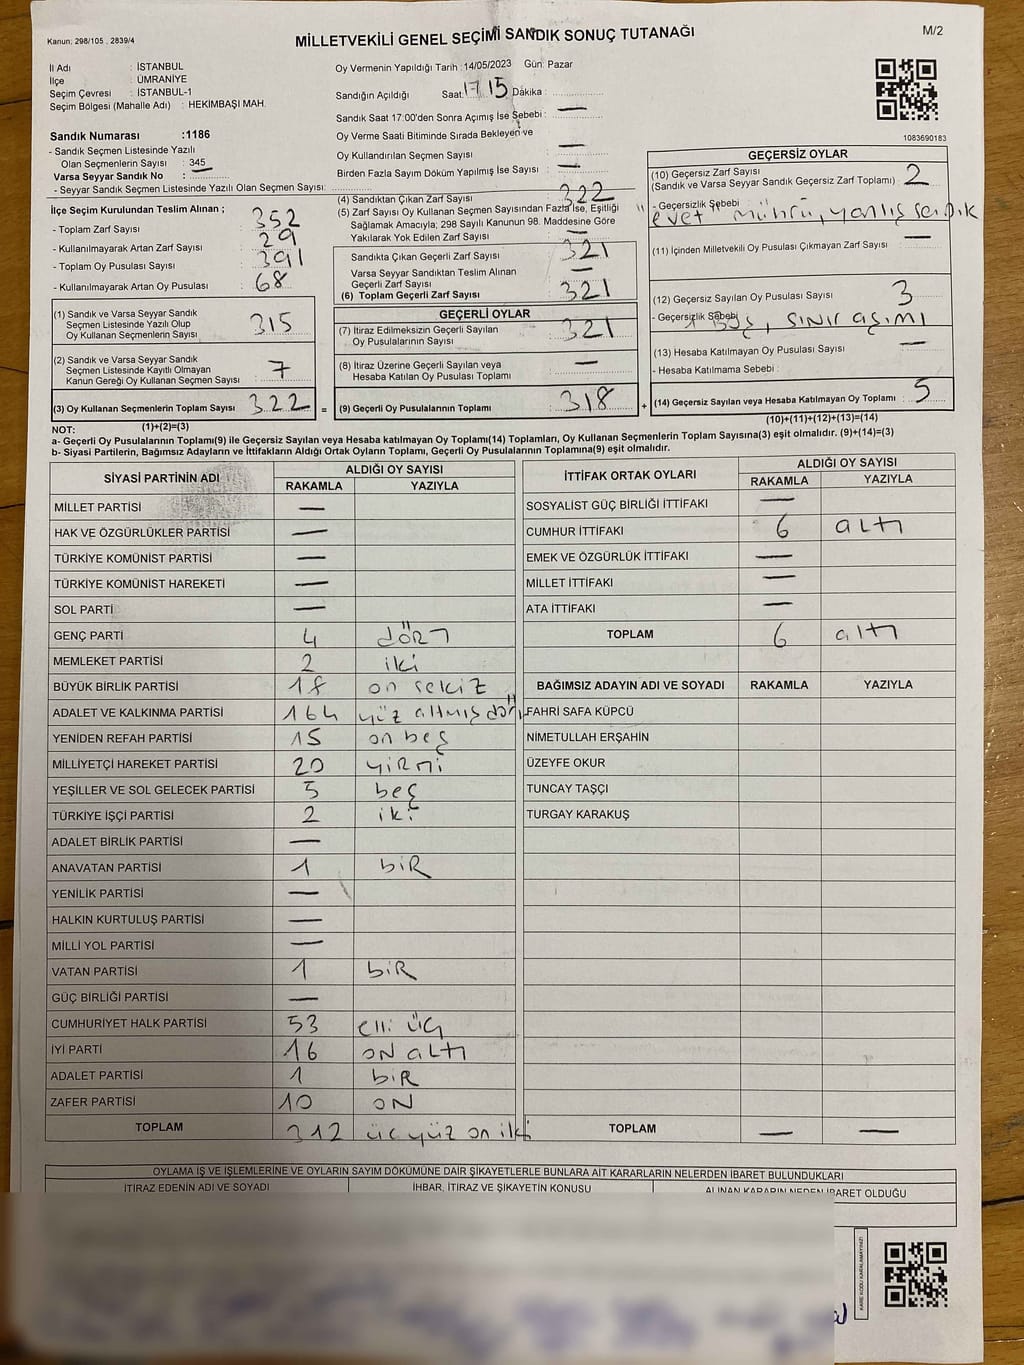 Kanun; 298/105 , 2839/4
MİLLETVEKİLİ GENEL SEÇİMİ SANDIK SONUÇ TUTANAĞI
M/2
İl Adı : İSTANBUL
İlçe : ÜMRANİYE
Seçim Çevresi : İSTANBUL-1
Seçim Bölgesi (Mahalle Adı) : HEKİMBAŞI MAH.
Sandık Numarası :1186
- Sandık Seçmen Listesinde Yazılı
Olan Seçmenlerin Sayısı : 345
Varsa Seyyar Sandık No : —
- Seyyar Sandık Seçmen Listesinde Yazılı Olan Seçmen Sayısı:
Oy Vermenin Yapıldığı Tarih :14/05/2023 Gün: Pazar
Sandığın Açıldığı Saat: 17 15 Dakika :
Sandık Saat 17:00'den Sonra Açımış İse Sebebi : —
Oy Verme Saati Bitiminde Sırada Bekleyen ve
Oy Kullandırılan Seçmen Sayısı : —
Birden Fazla Sayım Döküm Yapılmış İse Sayısı : —
1083690183
İlçe Seçim Kurulundan Teslim Alınan ;
- Toplam Zarf Sayısı : 352
- Kullanılmayarak Artan Zarf Sayısı : 29
- Toplam Oy Pusulası Sayısı : 391
- Kullanılmayarak Artan Oy Pusulası : 68
(1) Sandık ve Varsa Seyyar Sandık
Seçmen Listesinde Yazılı Olup
Oy Kullanan Seçmenlerin Sayısı : 315
(2) Sandık ve Varsa Seyyar Sandık
Seçmen Listesinde Kayıtlı Olmayan
Kanun Gereği Oy Kullanan Seçmen Sayısı : 7
(3) Oy Kullanan Seçmenlerin Toplam Sayısı : 322 =
(1)+(2)=(3)
(4) Sandıktan Çıkan Zarf Sayısı : 322
(5) Zarf Sayısı Oy Kullanan Seçmen Sayısından Fazla İse, Eşitliği
Sağlamak Amacıyla; 298 Sayılı Kanunun 98. Maddesine Göre
Yakılarak Yok Edilen Zarf Sayısı : —
Sandıkta Çıkan Geçerli Zarf Sayısı : 321
Varsa Seyyar Sandıktan Teslim Alınan
Geçerli Zarf Sayısı : —
(6) Toplam Geçerli Zarf Sayısı : 321
GEÇERLİ OYLAR
(7) İtiraz Edilmeksizin Geçerli Sayılan
Oy Pusulalarının Sayısı : 321
(8) İtiraz Üzerine Geçerli Sayılan veya
Hesaba Katılan Oy Pusulası Toplamı : —
(9) Geçerli Oy Pusulalarının Toplamı : 318 +
GEÇERSİZ OYLAR
(10) Geçersiz Zarf Sayısı : 2
(Sandık ve Varsa Seyyar Sandık Geçersiz Zarf Toplamı)
- Geçersizlik Sebebi :
"evet" mührü, yanlış sandık
(11) İçinden Milletvekili Oy Pusulası Çıkmayan Zarf Sayısı : —
(12) Geçersiz Sayılan Oy Pusulası Sayısı : 3
- Geçersizlik Sebebi
1 Boş, sınır aşımı
(13) Hesaba Katılmayan Oy Pusulası Sayısı : —
- Hesaba Katılmama Sebebi :
(14) Geçersiz Sayılan veya Hesaba Katılmayan Oy Toplamı : 5
(10)+(11)+(12)+(13)=(14)
NOT:
a- Geçerli Oy Pusulalarının Toplamı(9) ile Geçersiz Sayılan veya Hesaba katılmayan Oy Toplamı(14) Toplamları, Oy Kullanan Seçmenlerin Toplam Sayısına(3) eşit olmalıdır. (9)+(14)=(3)
b- Siyasi Partilerin, Bağımsız Adayların ve İttifakların Aldığı Ortak Oyların Toplamı, Geçerli Oy Pusulalarının Toplamına(9) eşit olmalıdır.
SİYASİ PARTİNİN ADI ALDIĞI OY SAYISI
RAKAMLA YAZIYLA
MİLLET PARTİSİ —
HAK VE ÖZGÜRLÜKLER PARTİSİ —
TÜRKİYE KOMÜNİST PARTİSİ —
TÜRKİYE KOMÜNİST HAREKETİ —
SOL PARTİ —
GENÇ PARTİ 4 dört
MEMLEKET PARTİSİ 2 iki
BÜYÜK BİRLİK PARTİSİ 18 on sekiz
ADALET VE KALKINMA PARTİSİ 164 yüz altmış dört
YENİDEN REFAH PARTİSİ 15 on beş
MİLLİYETÇİ HAREKET PARTİSİ 20 yirmi
YEŞİLLER VE SOL GELECEK PARTİSİ 5 beş
TÜRKİYE İŞÇİ PARTİSİ 2 iki
ADALET BİRLİK PARTİSİ —
ANAVATAN PARTİSİ 1 biR
YENİLİK PARTİSİ —
HALKIN KURTULUŞ PARTİSİ —
MİLLİ YOL PARTİSİ —
VATAN PARTİSİ 1 biR
GÜÇ BİRLİĞİ PARTİSİ —
CUMHURİYET HALK PARTİSİ 53 elli üç
İYİ PARTİ 16 on altı
ADALET PARTİSİ 1 biR
ZAFER PARTİSİ 10 ON
TOPLAM 312 üçyüz on iki
İTTİFAK ORTAK OYLARI ALDIĞI OY SAYISI
RAKAMLA YAZIYLA
SOSYALİST GÜÇ BİRLİĞİ İTTİFAKI —
CUMHUR İTTİFAKI 6 altı
EMEK VE ÖZGÜRLÜK İTTİFAKI —
MİLLET İTTİFAKI —
ATA İTTİFAKI —
TOPLAM 6 altı
BAĞIMSIZ ADAYIN ADI VE SOYADI RAKAMLA YAZIYLA
FAHRİ SAFA KÜPCÜ
NİMETULLAH ERŞAHİN
ÜZEYFE OKUR
TUNCAY TAŞÇI
TURGAY KARAKUŞ
TOPLAM — —
OYLAMA İŞ VE İŞLEMLERİNE VE OYLARIN SAYIM DÖKÜMÜNE DAİR ŞİKAYETLERLE BUNLARA AİT KARARLARIN NELERDEN İBARET BULUNDUKLARI
İTİRAZ EDENİN ADI VE SOYADI İHBAR, İTİRAZ VE ŞİKAYETİN KONUSU ALINAN KARARIN NEDEN İBARET OLDUĞU
KARE KODU KARALAMAYINIZ!